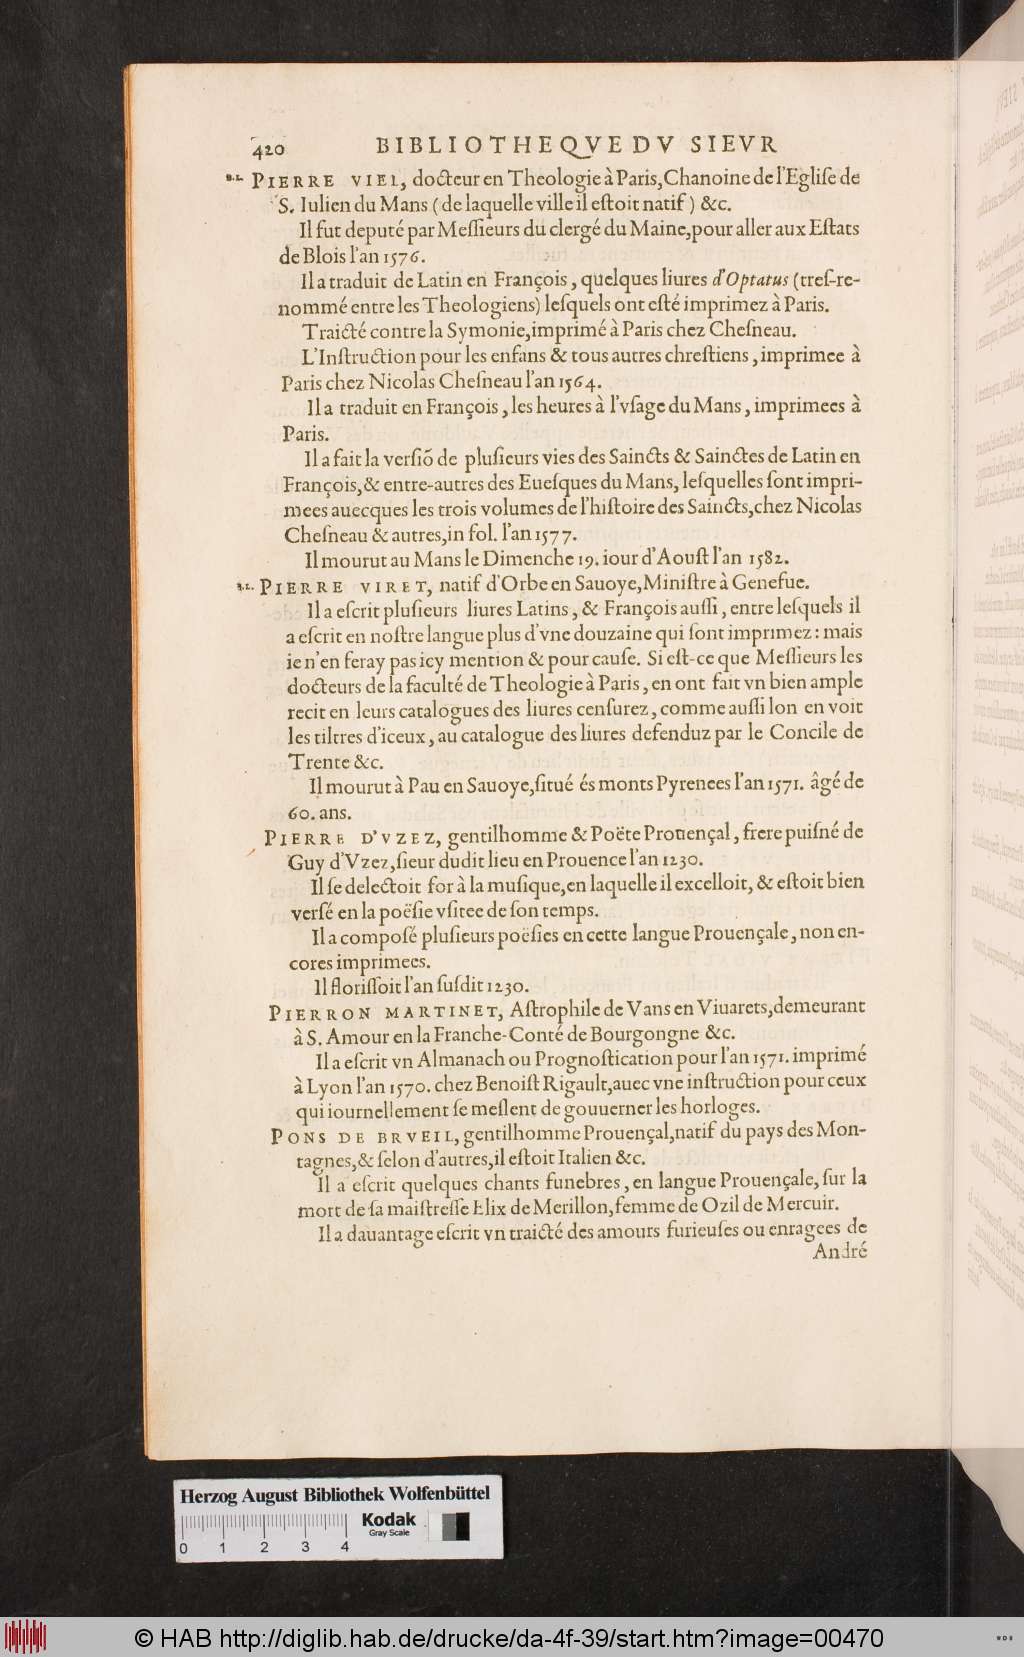 420 BIBLIOTHEQVE DV SIEVR
PIERRE VIEL, docteur en Theologie à Paris, Chanoine de l'Egliſe de
S. Iulien du Mans (de laquelle ville il eſtoit natif) &c.
Il fut deputé par Meſſieurs du clergé du Maine, pour aller aux Eſtats
de Blois l'an 1576.
Il a traduit de Latin en François, quelques liures d'Optatus (treſ-re-
nommé entre les Theologiens) leſquels ont eſté imprimez à Paris.
Traicté contre la Symonie, imprimé à Paris chez Cheſneau.
L'Inſtruction pour les enfans & tous autres chreſtiens, imprimee à
Paris chez Nicolas Cheſneau l'an 1564.
Il a traduit en François, les heures à l'vſage du Mans, imprimees à
Paris.
Il a fait la verſiõ de pluſieurs vies des Saincts & Sainctes de Latin en
François, & entre-autres des Eueſques du Mans, leſquelles ſont impri-
mees auecques les trois volumes de l'hiſtoire des Saincts, chez Nicolas
Cheſneau & autres, in fol. l'an 1577.
Il mourut au Mans le Dimenche 19. iour d'Aouſt l'an 1582.
PIERRE VIRET, natif d'Orbe en Sauoye, Miniſtre à Genefue.
Il a eſcrit pluſieurs liures Latins, & François auſſi, entre leſquels il
a eſcrit en noſtre langue plus d'vne douzaine qui ſont imprimez: mais
ie n'en feray pas icy mention & pour cauſe. Si eſt-ce que Meſſieurs les
docteurs de la faculté de Theologie à Paris, en ont fait vn bien ample
recit en leurs catalogues des liures cenſurez, comme auſſi lon en voit
les tiltres d'iceux, au catalogue des liures defenduz par le Concile de
Trente &c.
Il mourut à Pau en Sauoye, ſitué és monts Pyrenees l'an 1571. âgé de
60. ans.
PIERRE D'VZEZ, gentilhomme & Poëte Prouençal, frere puiſné de
Guy d'Vzez, ſieur dudit lieu en Prouence l'an 1230.
Il ſe delectoit for à la muſique, en laquelle il excelloit, & eſtoit bien
verſé en la poëſie vſitee de ſon temps.
Il a compoſé pluſieurs poëſies en cette langue Prouençale, non en-
cores imprimees.
Il floriſſoit l'an ſuſdit 1230.
PIERRON MARTINET, Aſtrophile de Vans en Viuarets, demeurant
à S. Amour en la Franche-Conté de Bourgongne &c.
Il a eſcrit vn Almanach ou Prognoſtication pour l'an 1571. imprimé
à Lyon l'an 1570. chez Benoiſt Rigault, auec vne inſtruction pour ceux
qui iournellement ſe meſlent de gouuerner les horloges.
PONS DE BRVEIL, gentilhomme Prouençal, natif du pays des Mon-
tagnes, & ſelon d'autres, il eſtoit Italien &c.
Il a eſcrit quelques chants funebres, en langue Prouençale, ſur la
mort de ſa maiſtreſſe Elix de Merillon, femme de Ozil de Mercuir.
Il a dauantage eſcrit vn traicté des amours furieuſes ou enragees de
André
Herzog August Bibliothek Wolfenbüttel
Kodak
Gray Scale
0 1 2 3 4
© HAB http://diglib.hab.de/drucke/da-4f-39/start.htm?image=00470